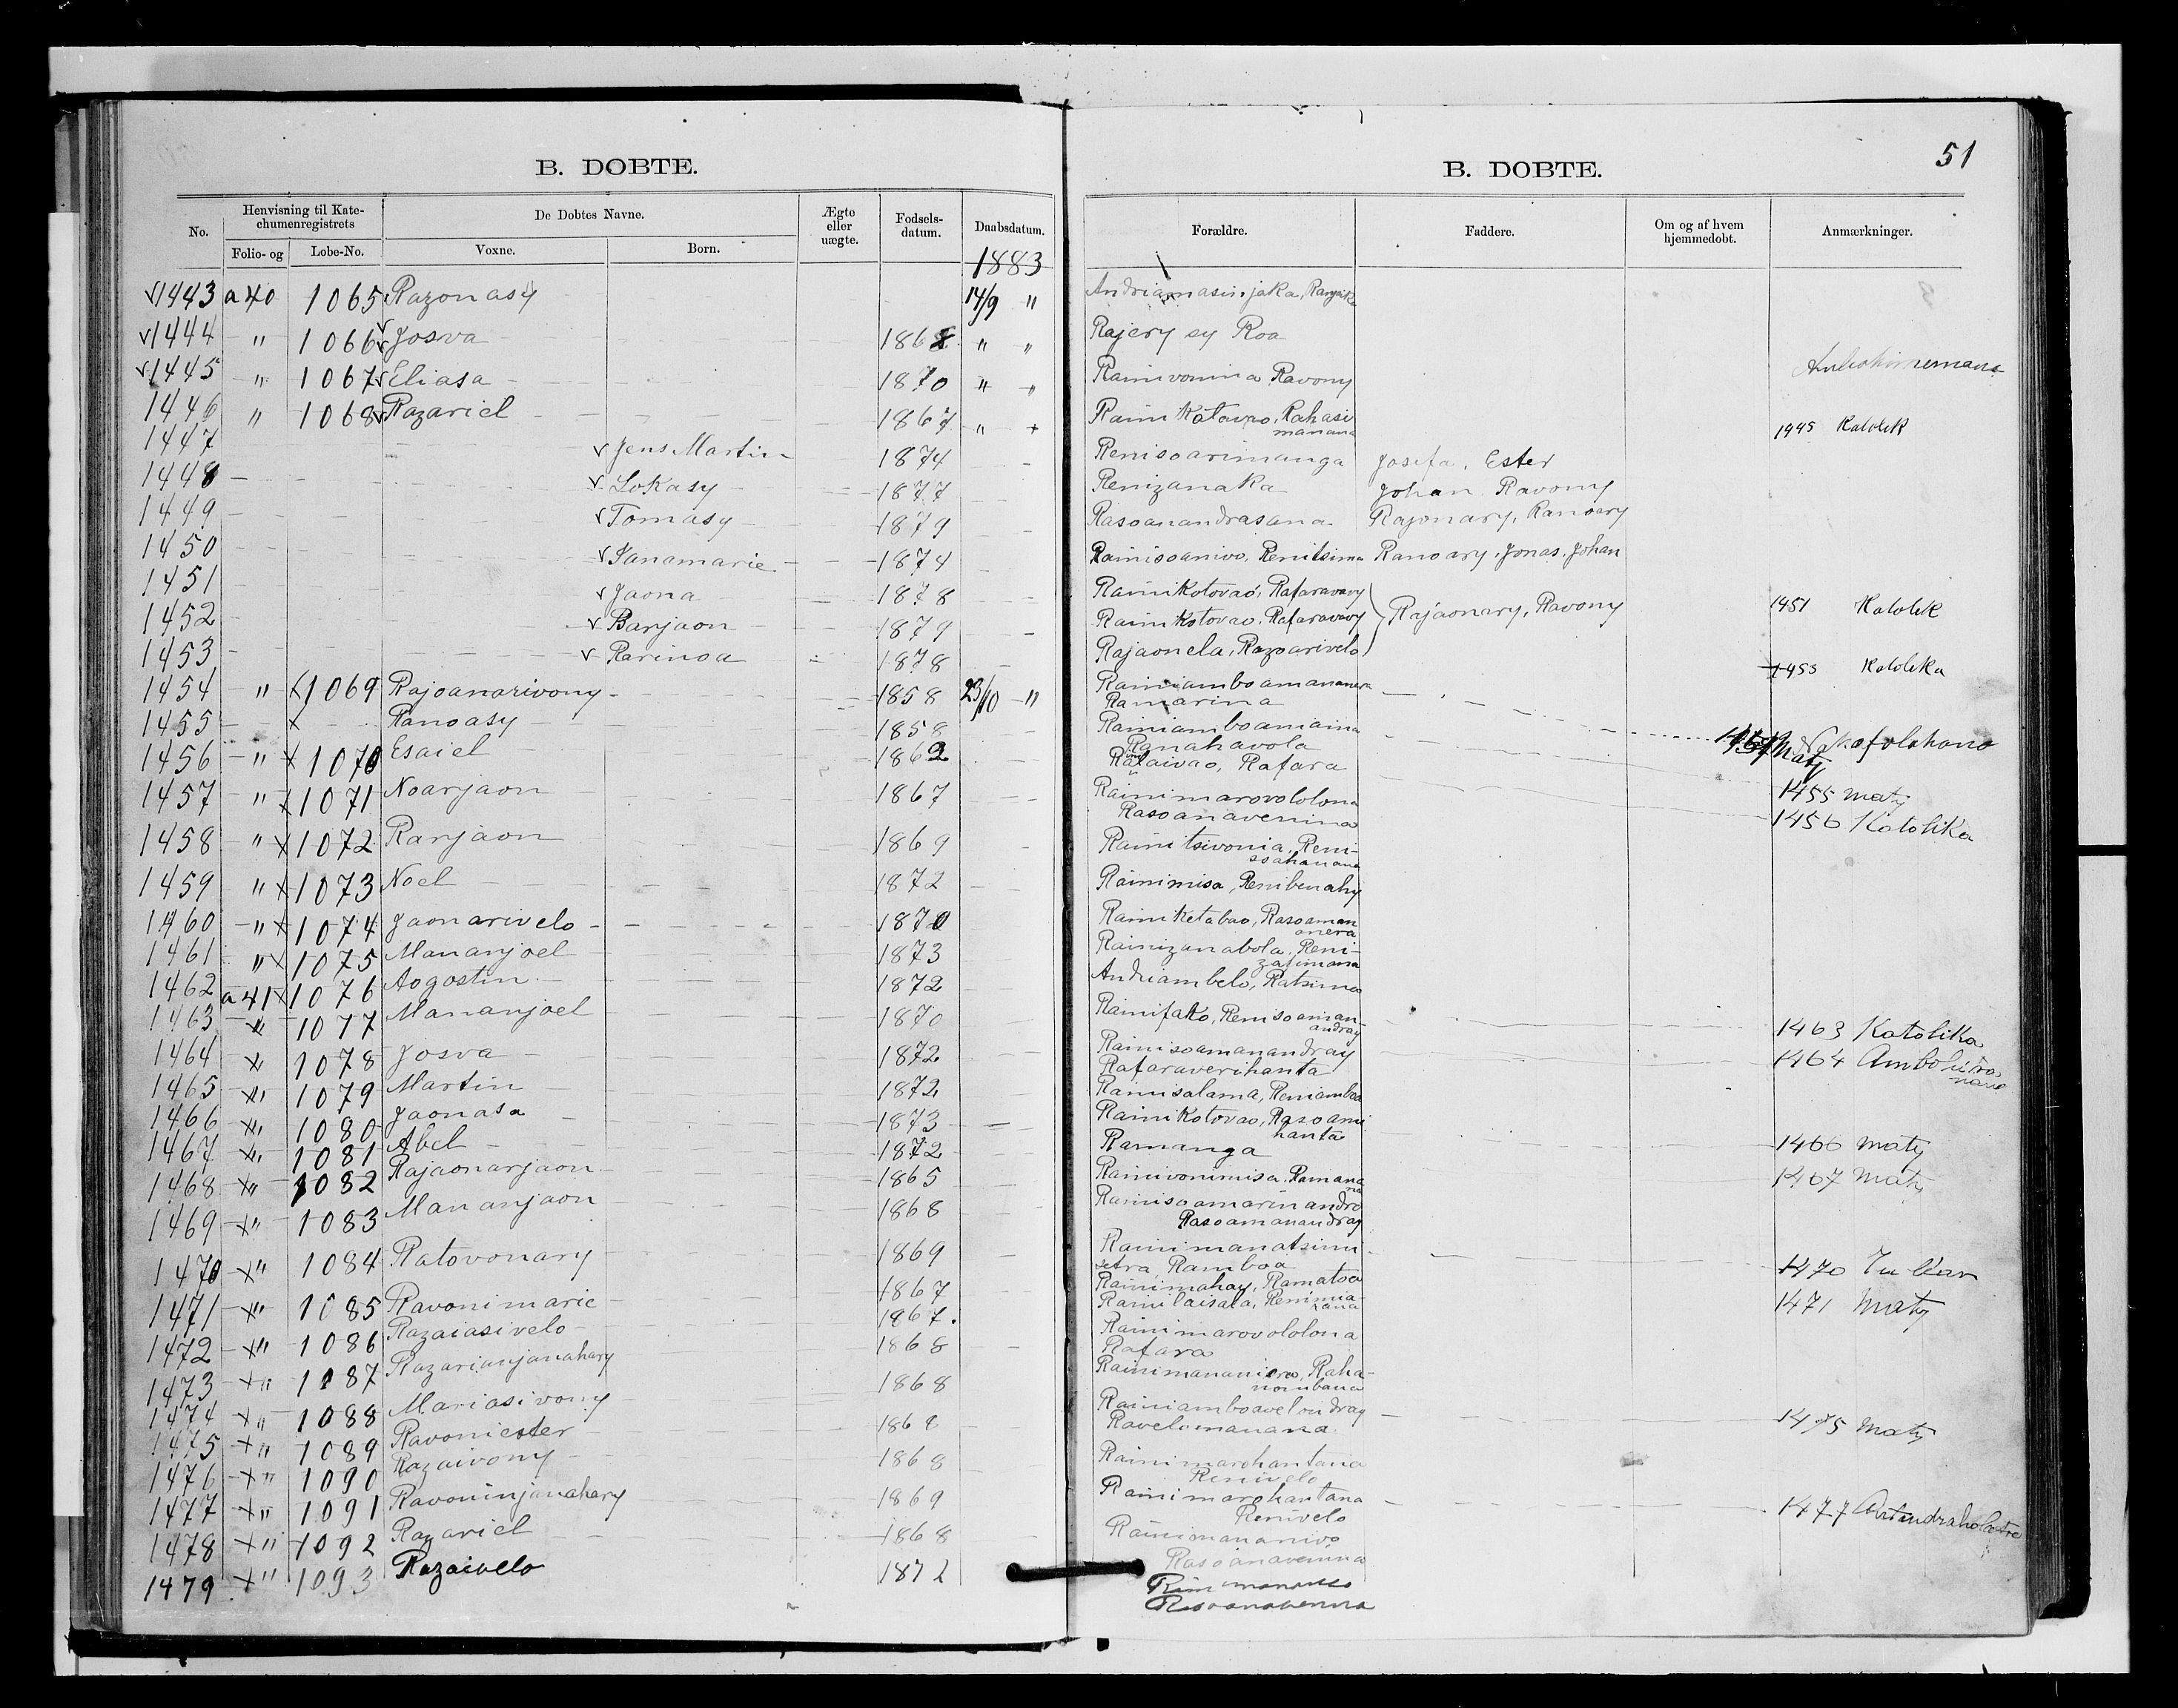 B. DOBTE.
No.
Henvisning til Kate-
chumenregistrets
Folio- og
Lobe-No.
De Dobtes Navne.
Voxne.
Born.
Ægte
eller
uægte.
Fodsels-
datum.
Daabsdatum.
1883
1443 a 40 1065 Razonasy 14/9 "
1444 " 1066 Josva 1868 " "
1445 " 1067 Eliasa 1870 " "
1446 " 1068 Razariel 1867 "
1447 Jens Martin 1874
1448 Lokasy 1877
1449 Tomasy 1879
1450 Janamarie 1874
1451 Jaona 1878
1452 Barjaon 1879
1453 Rarinoa 1878
1454 " x 1069 Rajoanarivony 1858 23/10 "
1455 x Ranoasy 1858
1456 " x 1070 Esaiel 1862
1457 " x 1071 Noarjaon 1867
1458 " x 1072 Ranjaon 1869
1459 " x 1073 Noel 1872
1460 " x 1074 Jaonarivelo 1870
1461 " x 1075 Mananjoel 1873
1462 a 41 x 1076 Aogostin 1872
1463 x 1077 Mananjoel 1870
1464 x 1078 Josva 1872
1465 x " 1079 Martin 1872
1466 x " 1080 Jaonasa 1873
1467 x " 1081 Abel 1872
1468 x " 1082 Rajaonarjaon 1865
1469 x " 1083 Mananjaon 1868
1470 x " 1084 Ratovonary 1869
1471 x " 1085 Ravonimarie 1867
1472 x " 1086 Razaiasivelo 1867.
1473 x " 1087 Razarianjanahary 1868
1474 x " 1088 Mariasivony 1868
1475 x " 1089 Ravoniester 1868
1476 x " 1090 Razaivony 1868
1477 x " 1091 Ravoninjanahary 1869
1478 x " 1092 Razariel 1868
1479 x " 1093 Razaivelo 1872
B. DOBTE.
51
Forældre.
Faddere.
Om og af hvem
hjemmedobt.
Anmærkninger.
Rajery sy Roa
Rainivonina Ravony
Rainikotovao, Rahasi
manana 1445 Katolik
Renisoarimanga Josefa, Ester
Renizanaka Johan Ravony
Rasoanandrasana Rajonary, Ranoary
Rainisoanivo, Renitsima Ranoary, Jonas, Johan
Rainikotovao, Rafaravavy
Rainikotovao, Rafaravavy Rajaonary, Ravony 1451 Katolik
Rajaonela, Razoarivelo
1453 Katolika
Rainiamboamananera
Ramarina
Rainiamboamaina
Ranahavola
Rafara
Maty
Rainimarovololona 1455 maty
Rasoanavenina 1456 Katolika
Rainitsivonia, Reni-
soahanana
Rainimisa, Renibenahy
Rainiketabao, Rasoaman
anera
Rainizanabola, Reni-
zafimana
Andriambelo, Ratsima
Rainifako, Renisoaman-
andray 1463 Katolika
Rainisoamanandray
Rafaraverihanta 1464
Rainisalama, Reniamboa
Rainikotovao, Rasoami
hanta
Ramanga 1466 maty
Rainivonimisa, Ramana
na 1467 Maty
Rainisoamarinandro
Rasoamanandray
Rainimanatsimi
setra, Ramboa 1470
Rainimahay, Ramatoa
Rainilaisala, 1471 Maty
Rainimarovololona
Rafara
Rainimananiera, Raha-
nombana
Rainiamboavelondray
Ravelomanana 1475 Maty
Rainimarohantana
Renivelo
Rainimarohantana
Renivelo 1477
Rainimananivo
Rasoanavenina
Rasoanavenina